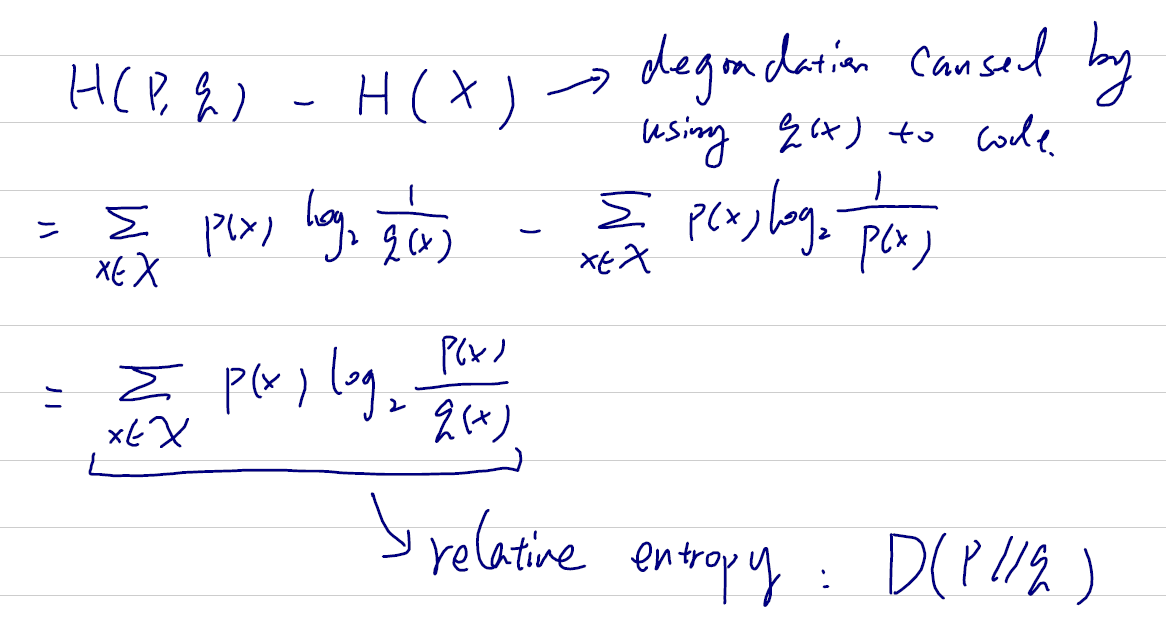 H(P, q) - H(X) → degradation caused by
using q(x) to code.
= ∑_{x∈𝒳} p(x) log₂ 1/q(x) - ∑_{x∈𝒳} p(x) log₂ 1/p(x)
= ∑_{x∈𝒳} p(x) log₂ p(x)/q(x)
↘ relative entropy : D(P//q)